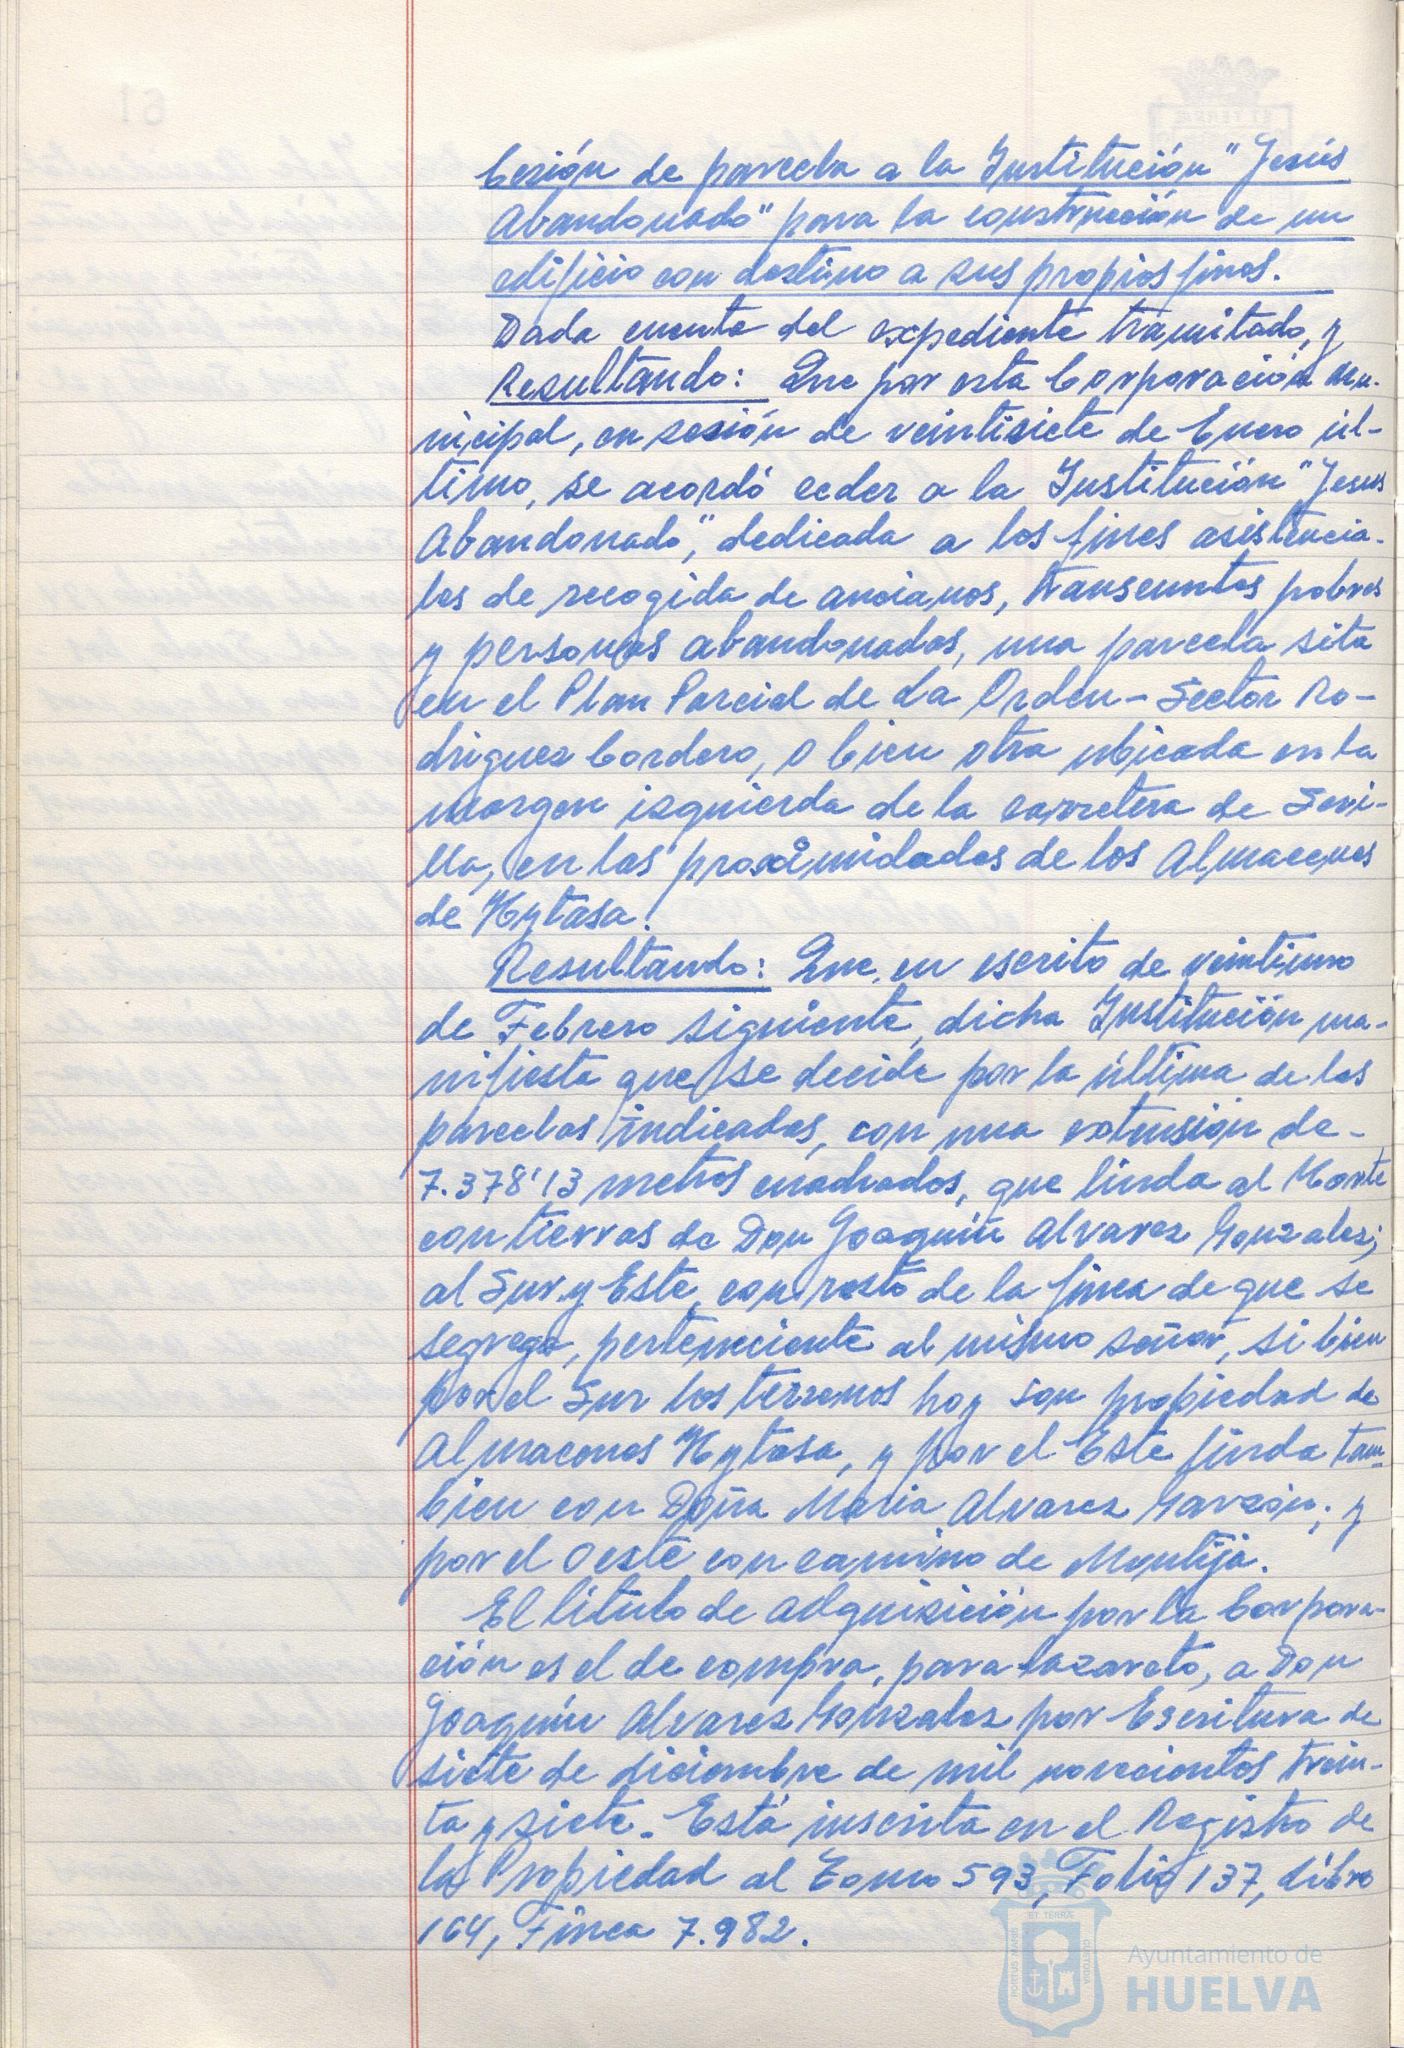 Cesión de parcela a la Institución "Jesús
Abandonado" para la construcción de un
edificio con destino a sus propios fines.
Dada cuenta del expediente tramitado, y
Resultando: Que por esta Corporación mu-
nicipal, en sesión de veintisiete de Enero úl-
timo, se acordó ceder a la Institución "Jesus
Abandonado", dedicada a los fines asistencia-
les de recogida de ancianos, transeuntes pobres
y personas abandonadas, una parcela sita
en el Plan Parcial de La Orden - Sector Ro-
driguez Cordero, o bien otra ubicada en la
margen izquierda de la carretera de Sevi-
lla, en las proximidades de los Almacenes
de Hytasa.
Resultando: Que, en escrito de veintiuno
de Febrero siguiente, dicha Institución ma-
nifiesta que se decide por la última de las
parcelas indicadas, con una extensión de -
7.378'13 metros cuadrados, que linda al Norte
con tierras de Don Joaquín Alvarez Gonzalez;
al Sur y Este, con resto de la finca de que se
segrega, perteneciente al mismo señor, si bien
por el Sur los terrenos hoy son propiedad de
Almacenes Hytasa, y por el Este linda tam-
bien con Doña Maria Alvarez Garzón; y
por el Oeste con camino de Montija.
El título de adquisición por la Corpora-
ción es el de compra, para lazareto, a Don
Joaquín Alvarez Gonzalez por Escritura de
siete de diciembre de mil novecientos trein-
ta y siete. Está inscrita en el Registro de
la Propiedad al Tomo 593, Folio 137, Libro
164, Finca 7.982.
Ayuntamiento de
HUELVA